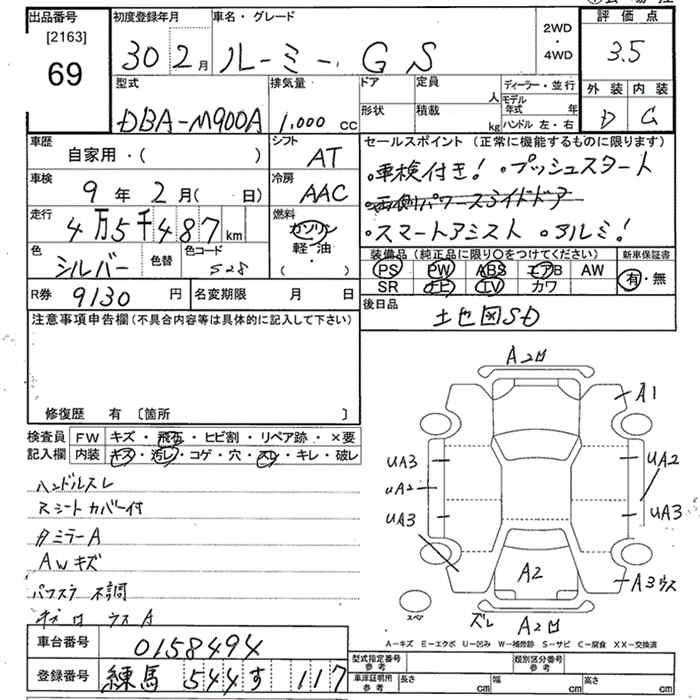 出品番号
[2163]
69
初度登録年月
30 2月
車名・グレード
ルーミー G S
2WD
・
4WD
評価点
3.5
外装 内装
D C
型式
DBA-M900A
排気量
1.000 cc
ドア
形状
定員
人
積載
kg
ディーラー・並行
モデル年式 年
ハンドル 左・右
車歴
自家用・( )
シフト
AT
車検
9年 2月( 日)
冷房
AAC
走行
4万5千487km
燃料
ガソリン
軽・油
( )
色
シルバー
色替
色コード
S28
R券 9130円
名変期限 月 日
セールスポイント(正常に機能するものに限ります)
・車検付き! ・プッシュスタート
・両側パワースライドドア
・スマートアシスト ・アルミ!
装備品(純正品に限り○をつけてください)
PS PW ABS エアB AW
SR ナビ TV カワ
新車保証書
有・無
後日品
地図SD
注意事項申告欄(不具合内容等は具体的に記入して下さい)
修復歴 有 〔箇所 〕
検査員記入欄
FW キズ・飛石・ヒビ割・リペア跡・×要
内装 キズ・汚レ・コゲ・穴・スレ・キレ・破レ
ハンドルスレ
Rシートカバー付
タミラーA
AWキズ
パワスラ不調
ウスA
A2凹
A1
UA3
UA2
UA3
UA2
UA3
A3ウス
A2
スペア
ズレ A2凹
A-キズ E-エクボ U-凹み W-補修跡 S-サビ C-腐食 XX-交換済
車台番号 0158494
登録番号 練馬 544 す 117
型式指定番号 参考
類別区分番号 参考
車庫証明用 参考
長さ cm 幅 cm 高さ cm